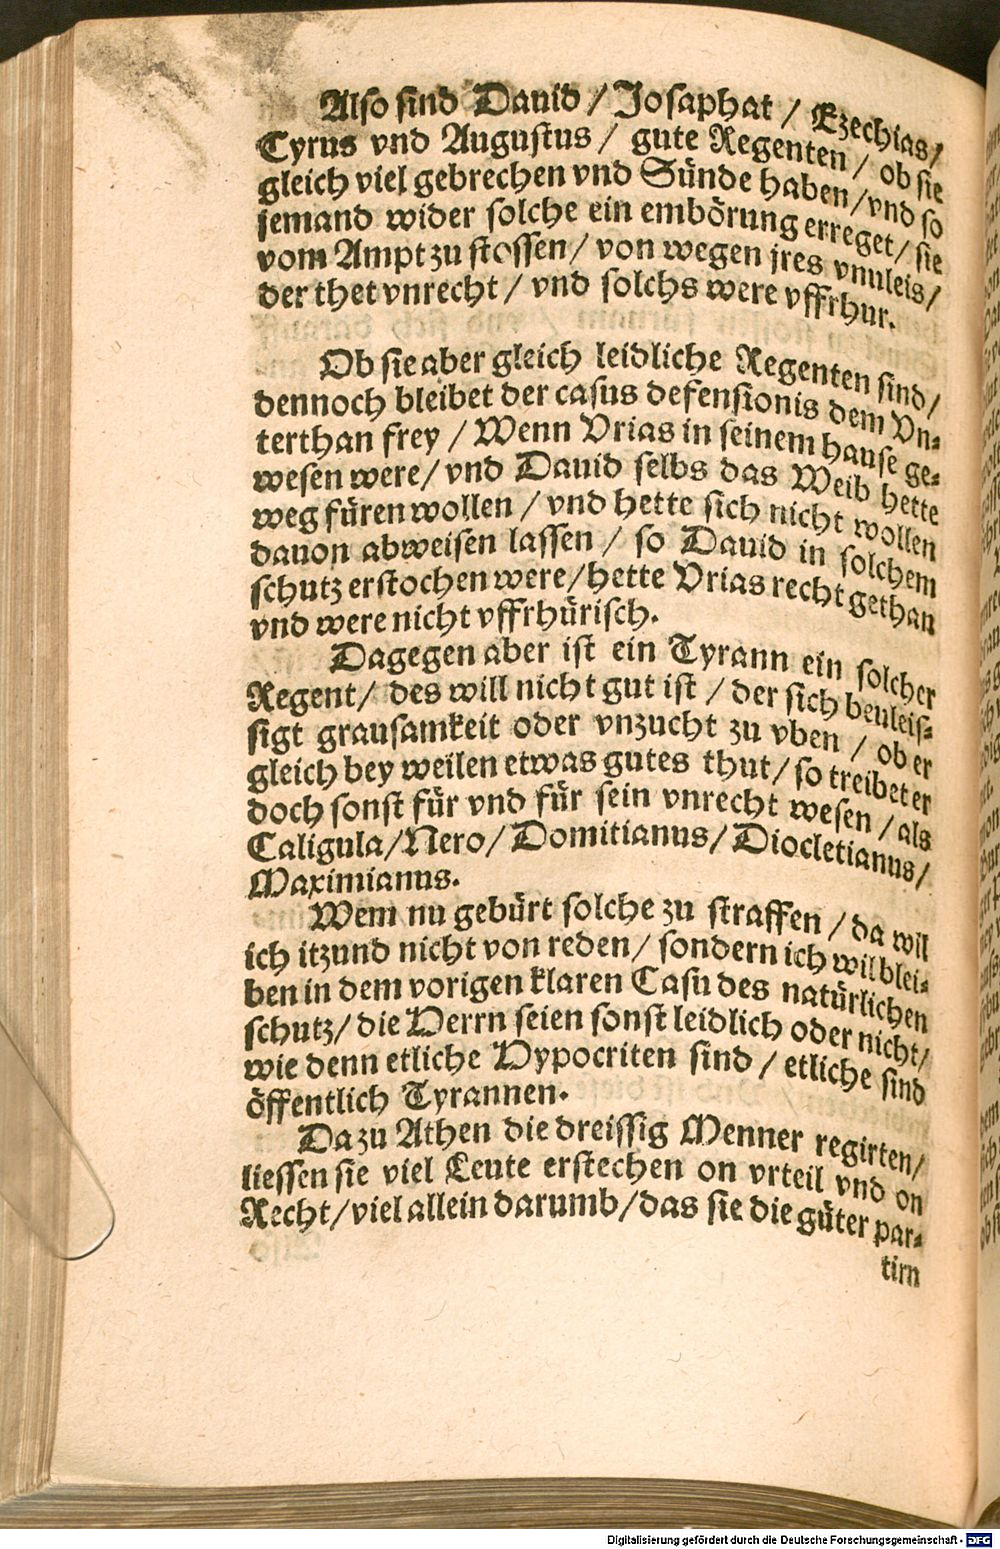 Also sind Dauid / Josaphat / Ezechias /
Cyrus vnd Augustus / gute Regenten / ob sie
gleich viel gebrechen vnd Sünde haben / vnd so
jemand wider solche ein embörung erreget / sie
vom Ampt zu stossen / von wegen jres vnuleis /
der thet vnrecht / vnd solchs were vffrhur.
Ob sie aber gleich leidliche Regenten sind /
dennoch bleibet der casus defensionis dem Vn-
terthan frey / Wenn Vrias in seinem hause ge-
wesen were / vnd Dauid selbs das Weib hette
weg füren wollen / vnd hette sich nicht wollen
dauon abweisen lassen / so Dauid in solchem
schutz erstochen were / hette Vrias recht gethan
vnd were nicht vffrhürisch.
Dagegen aber ist ein Tyrann ein solcher
Regent / des will nicht gut ist / der sich beuleis-
sigt grausamkeit oder vnzucht zu vben / ob er
gleich bey weilen etwas gutes thut / so treibet er
doch sonst für vnd für sein vnrecht wesen / als
Caligula / Nero / Domitianus / Diocletianus /
Maximianus.
Wem nu gebürt solche zu straffen / da wil
ich itzund nicht von reden / sondern ich wil blei-
ben in dem vorigen klaren Casu des natürlichen
schutz / die Herrn seien sonst leidlich oder nicht /
wie denn etliche Hypocriten sind / etliche sind
öffentlich Tyrannen.
Da zu Athen die dreissig Menner regirten /
liessen sie viel Leute erstechen on vrteil vnd on
Recht / viel allein darumb / das sie die güter par-
tirn
Digitalisierung gefördert durch die Deutsche Forschungsgemeinschaft - DFG